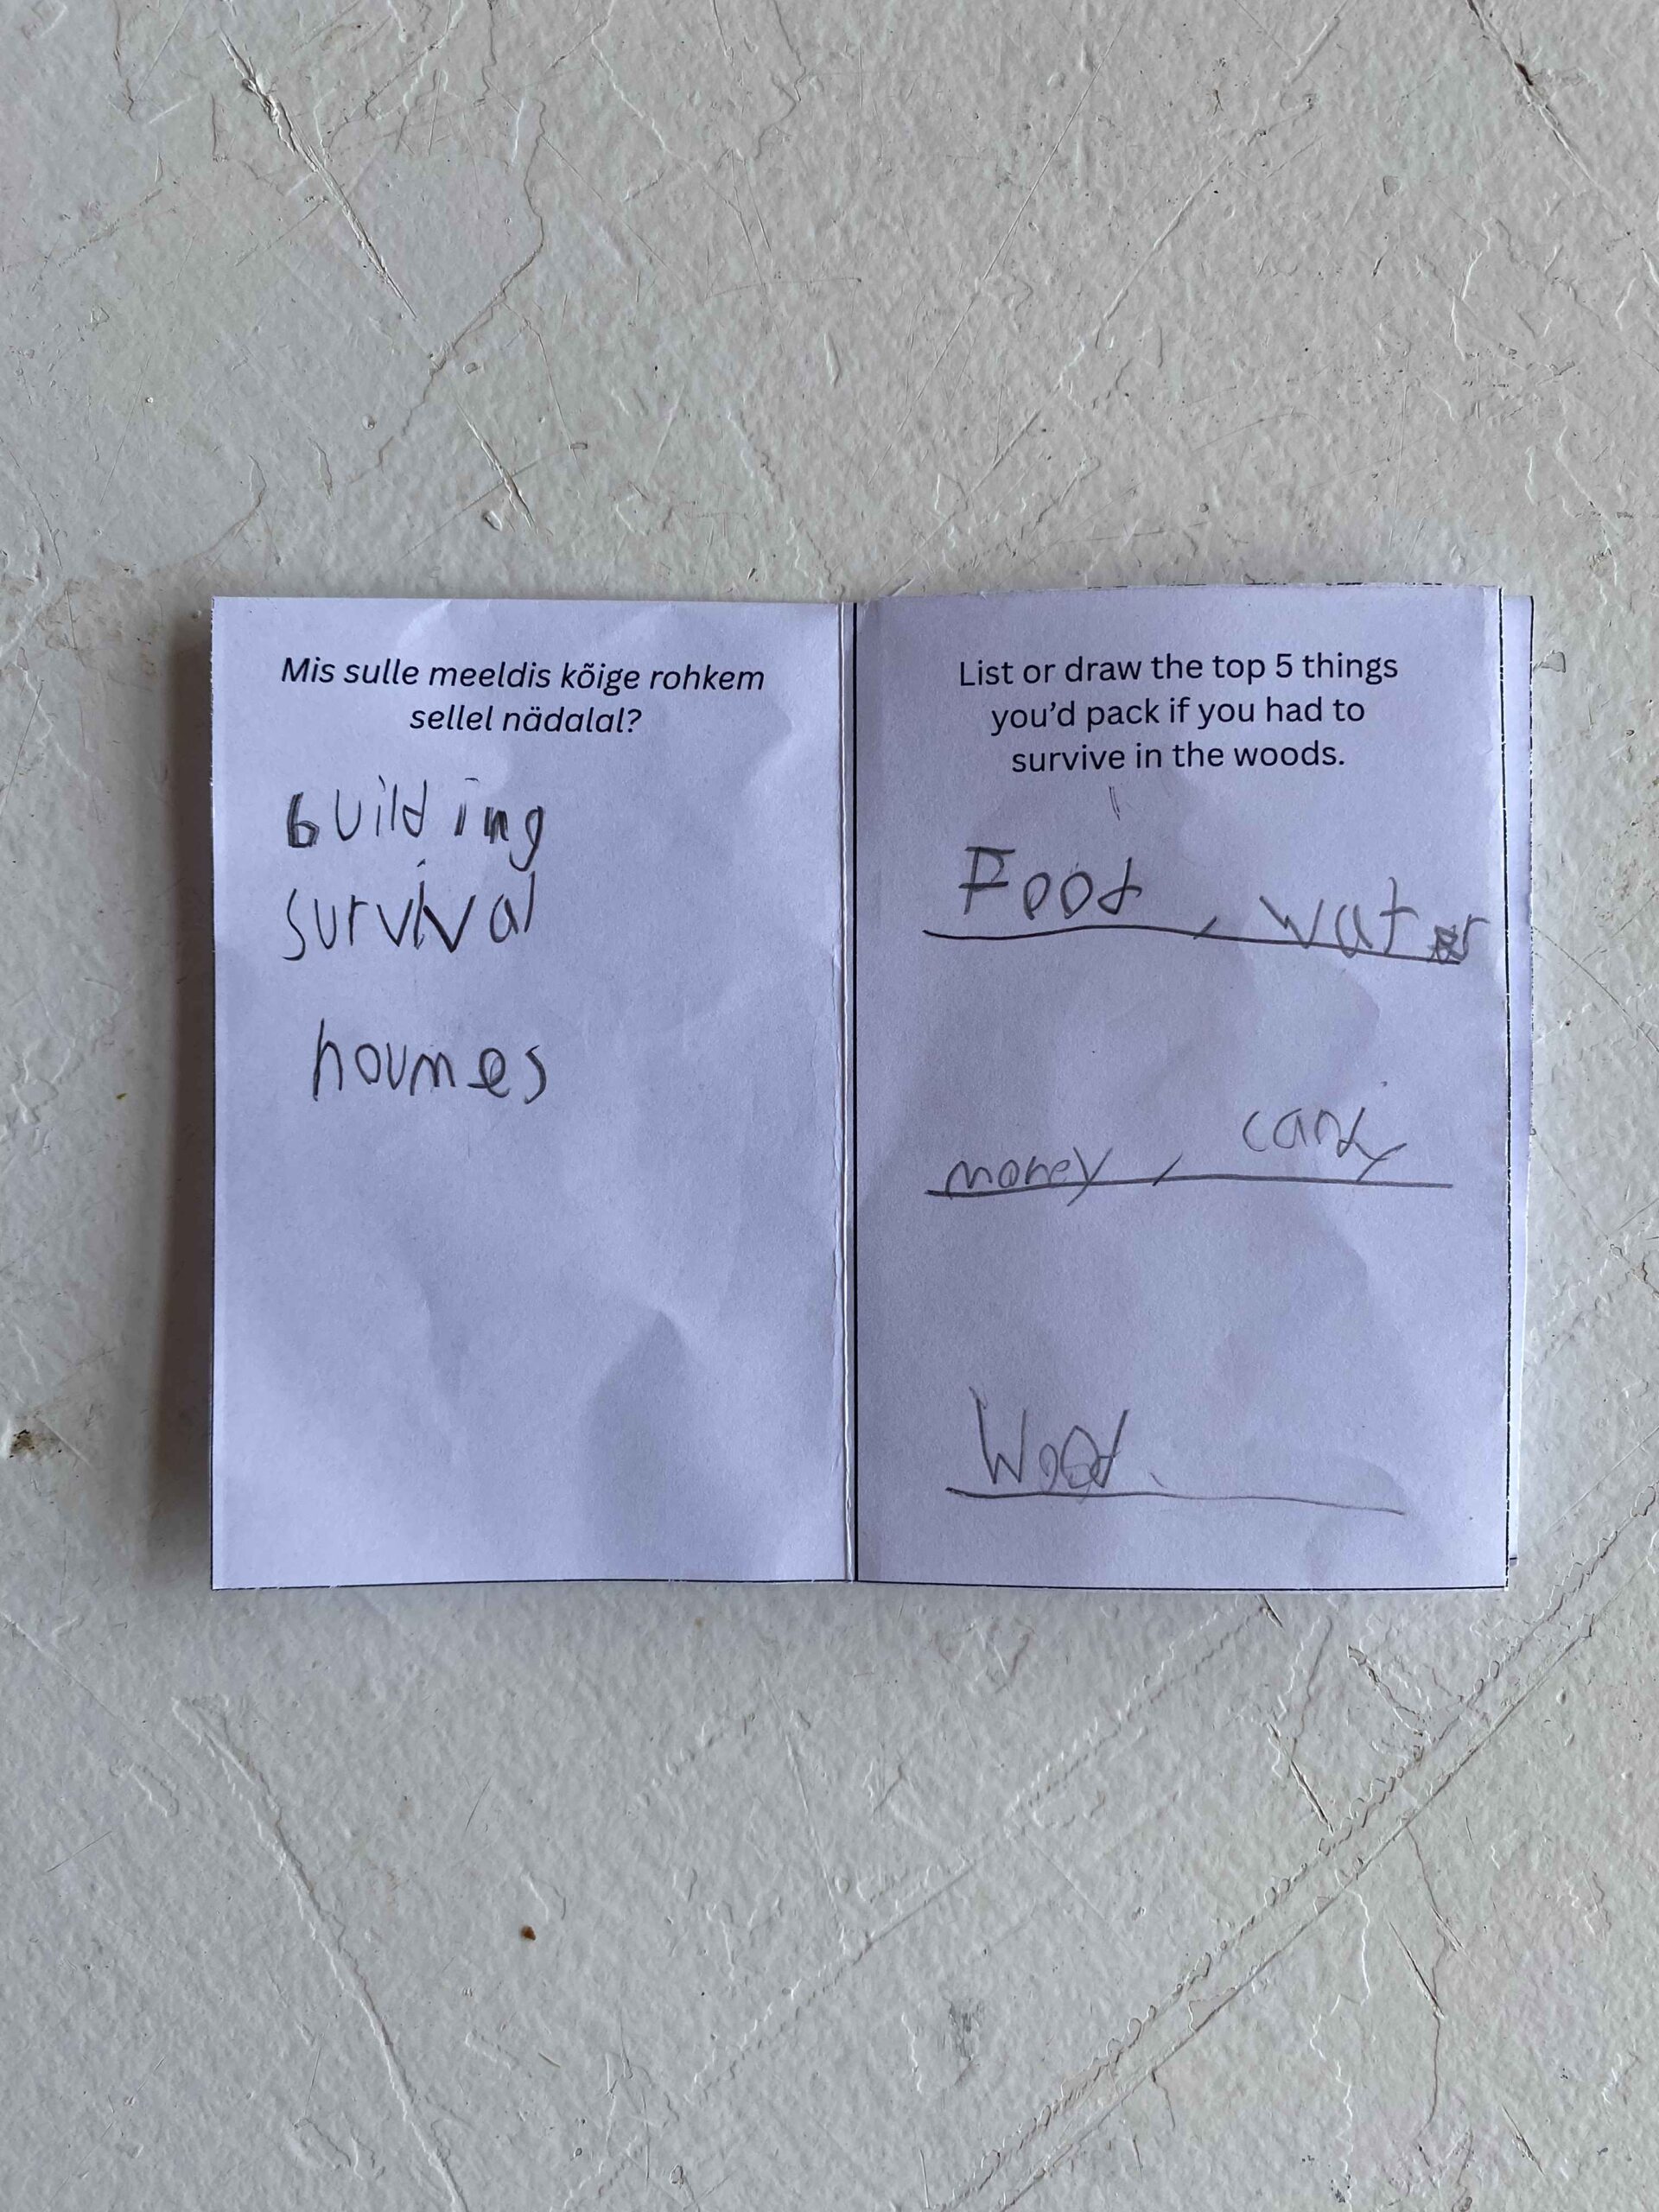 Mis sulle meeldis kõige rohkem
sellel nädalal?
building
survival
houmes
List or draw the top 5 things
you'd pack if you had to
survive in the woods.
Food, water
money, candy
Wood.